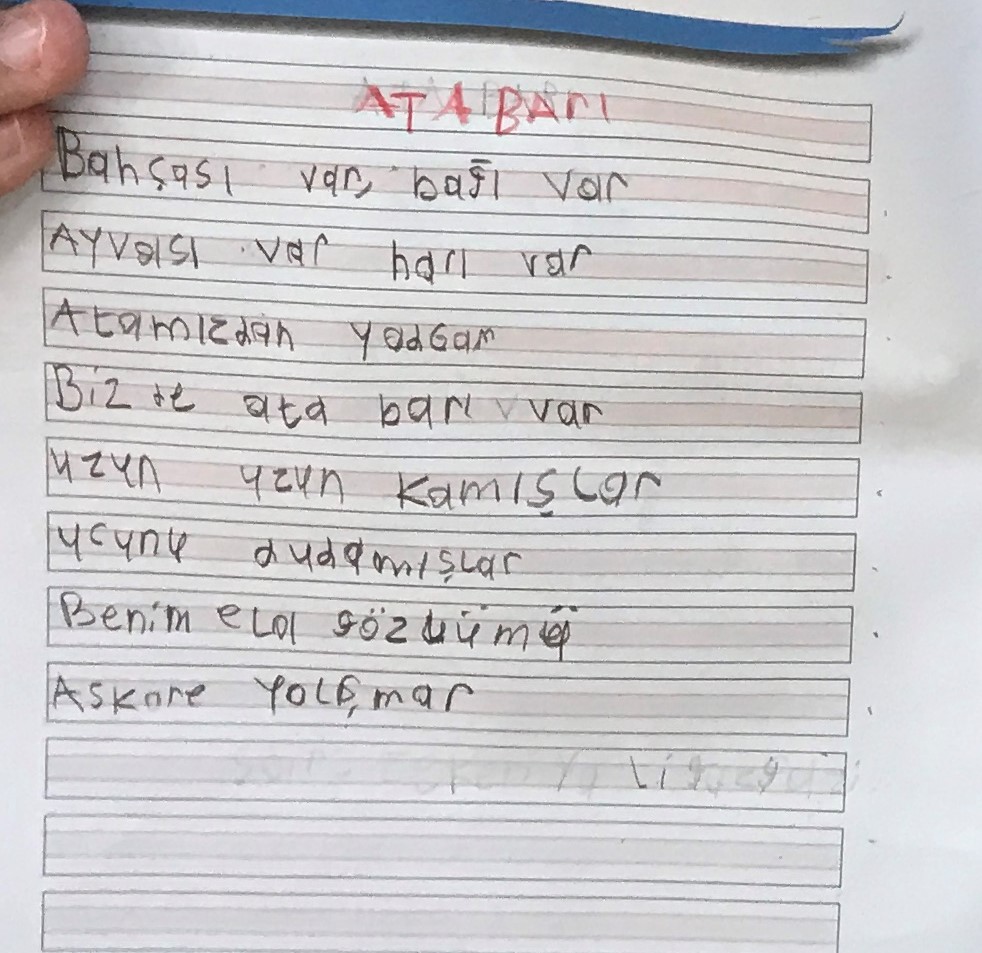 ATA BARI
Bahçası var, bağı var
Ayvası var harı var
Atamızdan yadgar
Biz de ata barı var
uzun uzun kamışlar
ucunu dudamışlar
Benim ela gözlüümü
Askare yolçmar